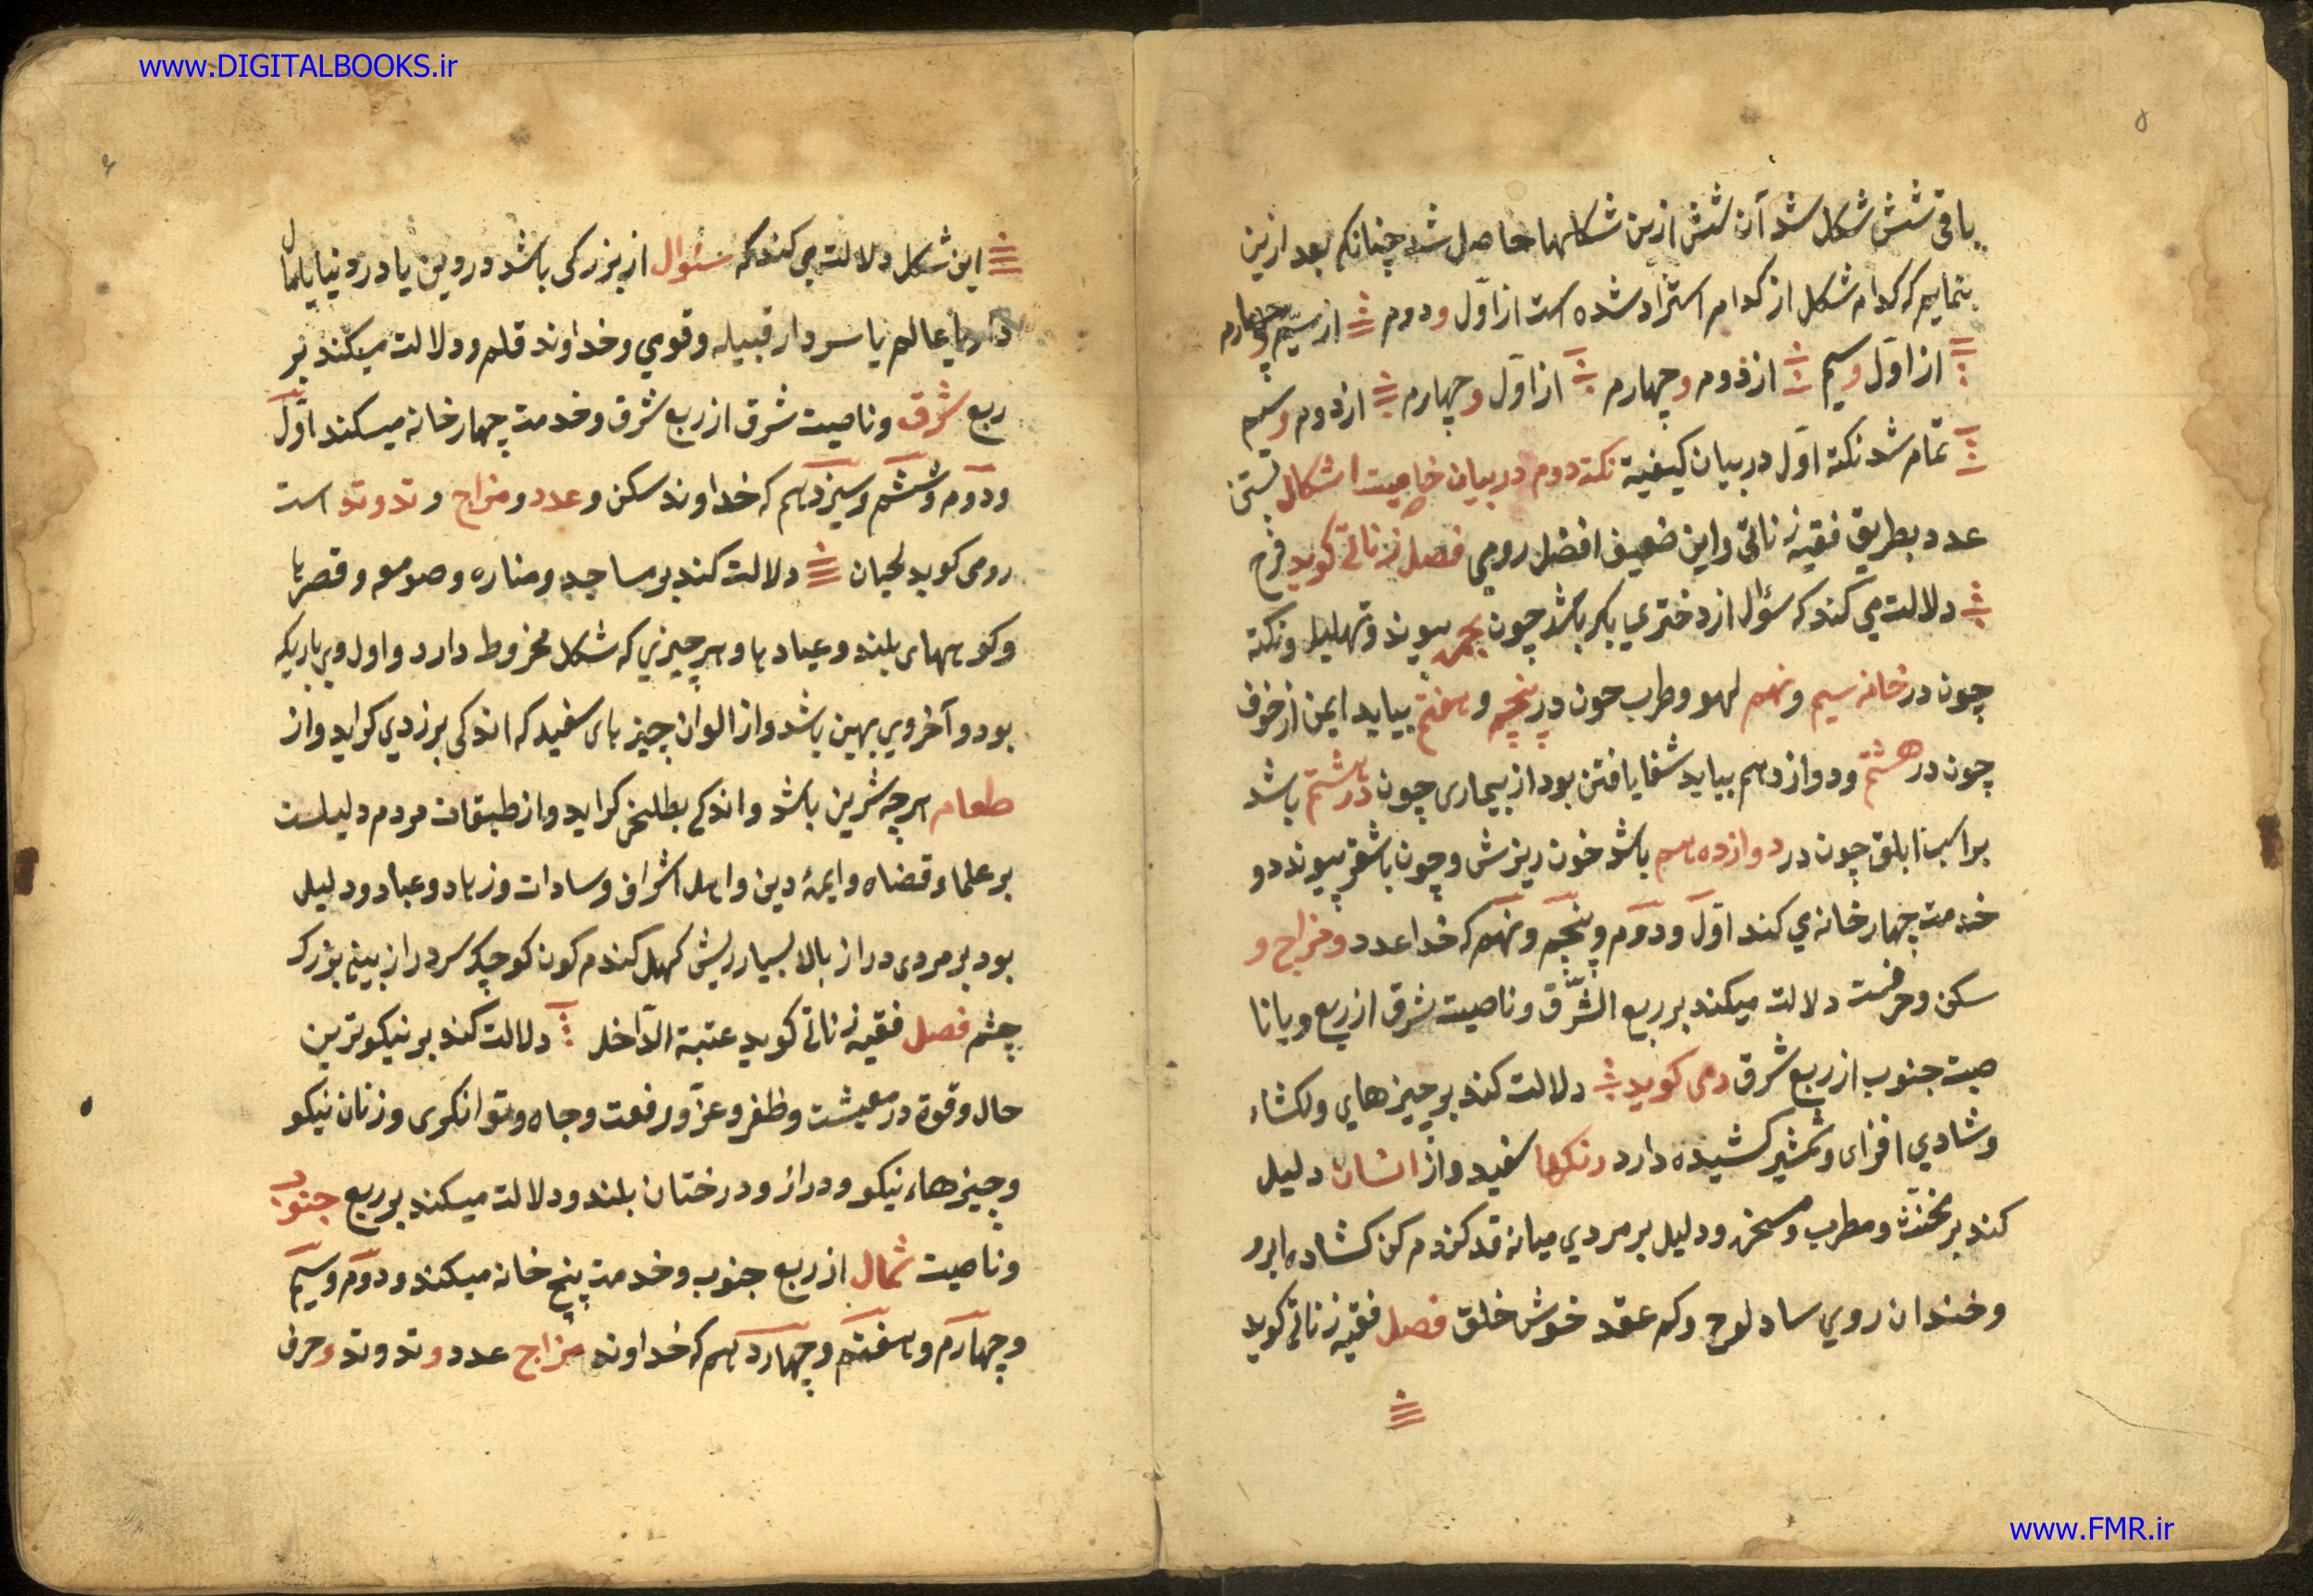 www.DIGITALBOOKS.ir
۵
باقی شش شکل شد آن شش ازین شکلها حاصل شد چنانکه بعد ازین
بنماییم که کدام شکل از کدام استخراد شده است از اوّل و دوم از سیّم و چهارم
از اوّل و سیم از دوم و چهارم از اوّل و چهارم از دوم و سیم
تمام شد نکته اوّل در بیان کیفیة نکته دوم در بیان خاصیت اشکال
عدد بطریق فقیه زناتی و این ضعیف افضل رومی فصل زناتی کوید فرح
دلالت می کند که سؤال از دختری بکر باشد چون پیوند و تهلیل و نکته
چون در خانه سیم و نهم لهو و طرب چون در پنجم و هفتم بیاید ایمن از خوف
چون در هشتم و دوازدهم بیاید شفا یافتن بود از بیماری چون در هشتم باشد
بر اسب ابلق چون در دوازدهم باشد خون ریزش و چون باشقر پیوند دو
خدمت چهار خانه ی کند اوّل و دوم و پنجم و نهم که خدا عدد و مزاج و
سکن و حرفست دلالت میکند بر ربع الشّرق و ناصیت شرق از ربع و یا نا
صیت جنوب از ربع شرق رمی کوید دلالت کند بر چیزهای ولکشاء
و شادی افزای و شمشیر کشیده دارد رنکها سفید و از انسان دلیل
کند بر مخنّث و مطرب و مسخره و دلیل بر مردی میانه قد کندم کن کشاده ابرو
و خندان روی ساد لوح و کم عقد خوش خلق فصل فقیه زناتی کوید
۶
این شکل دلالت می کند که سئوال از بزرکی باشد در دین یا در دنیا یا
یا عالم یا سردار قبیله و قوی و خداوند قلم و دلالت میکند بر
ربع شرق و ناصیت شرق از ربع شرق و خدمت چهار خانه میکند اوّل
و دوم و ششم و سیزدهم که خداوند سکن و عدد و مزاج و تد وتد است
رومی کوید لحیان دلالت کند بر مساجد و مناره و صومعه و قصرها
و کوههای بلند و عبادها و هر چیزی که شکل مخروط دارد و اول وی باریکه
بود و آخر وی بهین باشد و از الوان چیزهای سفید که اندکی بزردی کراید و از
طعام هر چه شرین باشد و اندکی بطلخی کراید و از طبقات مردم دلیلست
بر علماء و قضاه و ایمهٔ دین و اهل اشراف و سادات و زهاد و عباد و دلیل
بود بر مردی دراز بالا بسیار ریش کهل کندم کون کوچک سر دراز بینی بزرک
چشم فصل فقیه زناتی کوید عتبة الدّاخل دلالت کند بر نیکوترین
حال و قوة در معیشت و ظفر و عزّ و رفعت و جاه و توانکری و زنان نیکو
و چیزهاء نیکو و دراز و درختان بلند و دلالت میکند بر ربع جنوب
و ناصیت شمال از ربع جنوب و خدمت پنج خانه میکند و دوّم و سیم
و چهارم و هفتم و چهاردهم که خداوند مزاج عدد و تد وتد و حرف
www.FMR.ir